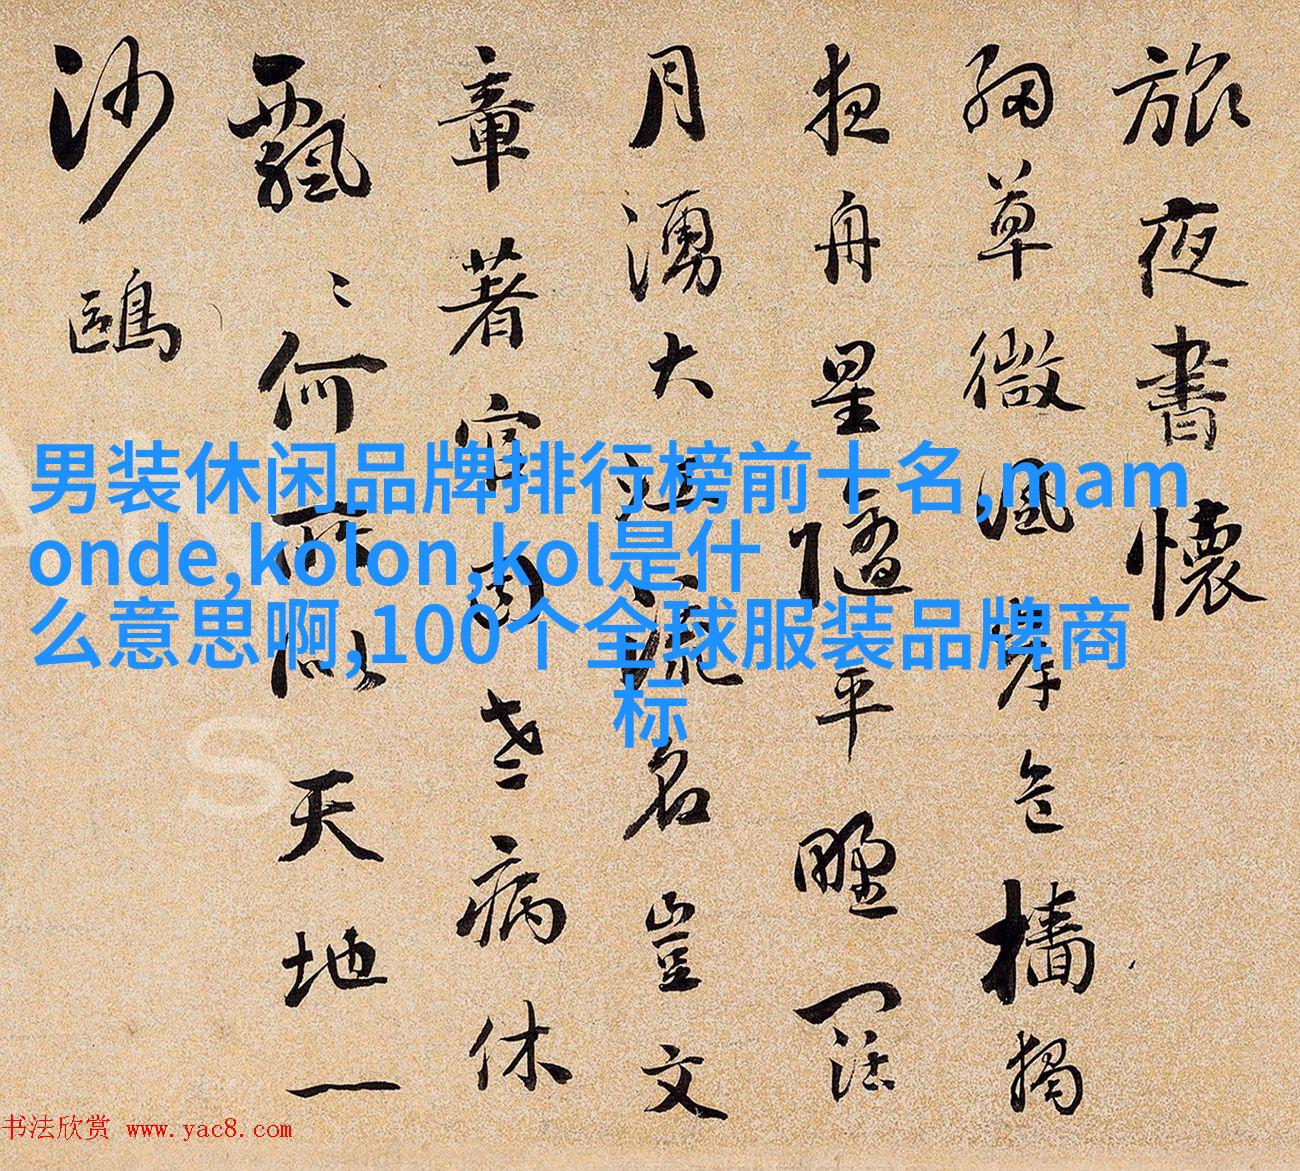 旅夜書懷
細草微風岸危檣獨
夜舟星隨平野闊
月湧大江流名豈文
章著官因老病休
飄〻何所似天地一
沙鷗
男装休闲品牌排行榜前十名,mam
onde,kolon,kol是什
么意思啊,100个全球服装品牌商
标
书法欣赏 www.yac8.com